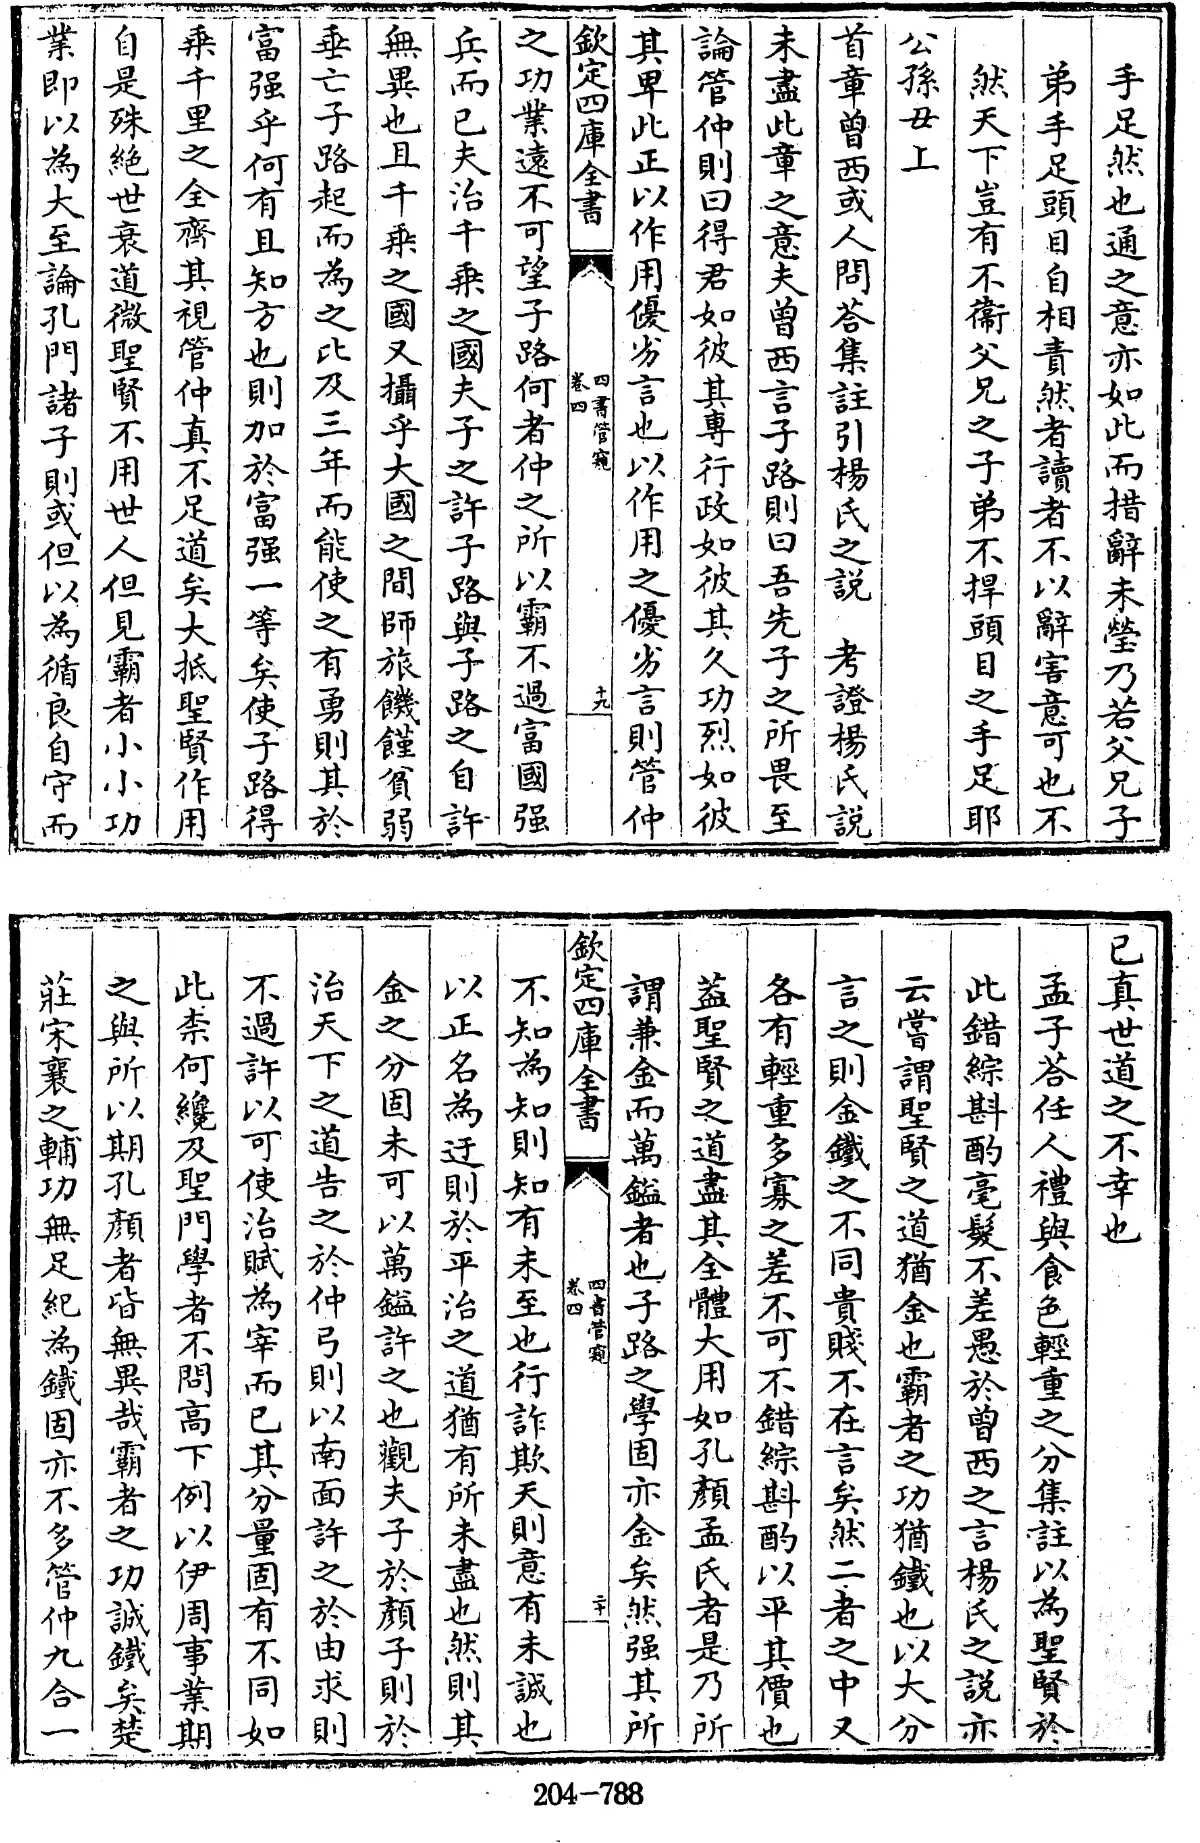 手足然也通之意亦如此而措辭未瑩乃若父兄子
弟手足頭目自相責然者讀者不以辭害意可也不
然天下豈有不衞父兄之子弟不捍頭目之手足耶
公孫丑上
首章曾西或人問荅集註引楊氏之説　考證楊氏説
未盡此章之意夫曾西言子路則曰吾先子之所畏至
論管仲則曰得君如彼其專行政如彼其久功烈如彼
其卑此正以作用優劣言也以作用之優劣言則管仲
欽定四庫全書
四書管窺
卷四
十九
之功業遠不可望子路何者仲之所以霸不過富國强
兵而已夫治千乘之國夫子之許子路與子路之自許
無異也且千乘之國又攝乎大國之間師旅饑饉貧弱
垂亡子路起而為之比及三年而能使之有勇則其於
富强乎何有且知方也則加於富强一等矣使子路得
乘千里之全齊其視管仲真不足道矣大抵聖賢作用
自是殊絶世衰道微聖賢不用世人但見霸者小小功
業即以為大至論孔門諸子則或但以為循良自守而
已真世道之不幸也
孟子荅任人禮與食色輕重之分集註以為聖賢於
此錯綜斟酌毫髮不差愚於曾西之言楊氏之説亦
云嘗謂聖賢之道猶金也霸者之功猶鐵也以大分
言之則金鐵之不同貴賤不在言矣然二者之中又
各有輕重多寡之差不可不錯綜斟酌以平其價也
葢聖賢之道盡其全體大用如孔顔孟氏者是乃所
謂兼金而萬鎰者也子路之學固亦金矣然强其所
欽定四庫全書
四書管窺
卷四
二十
不知為知則知有未至也行詐欺天則意有未誠也
以正名為迂則於平治之道猶有所未盡也然則其
金之分固未可以萬鎰許之也觀夫子於顔子則於
治天下之道告之於仲弓則以南面許之於由求則
不過許以可使治賦為宰而已其分量固有不同如
此柰何纔及聖門學者不問高下例以伊周事業期
之與所以期孔顔者皆無異哉霸者之功誠鐵矣楚
莊宋襄之輔功無足紀為鐵固亦不多管仲九合一
204-788